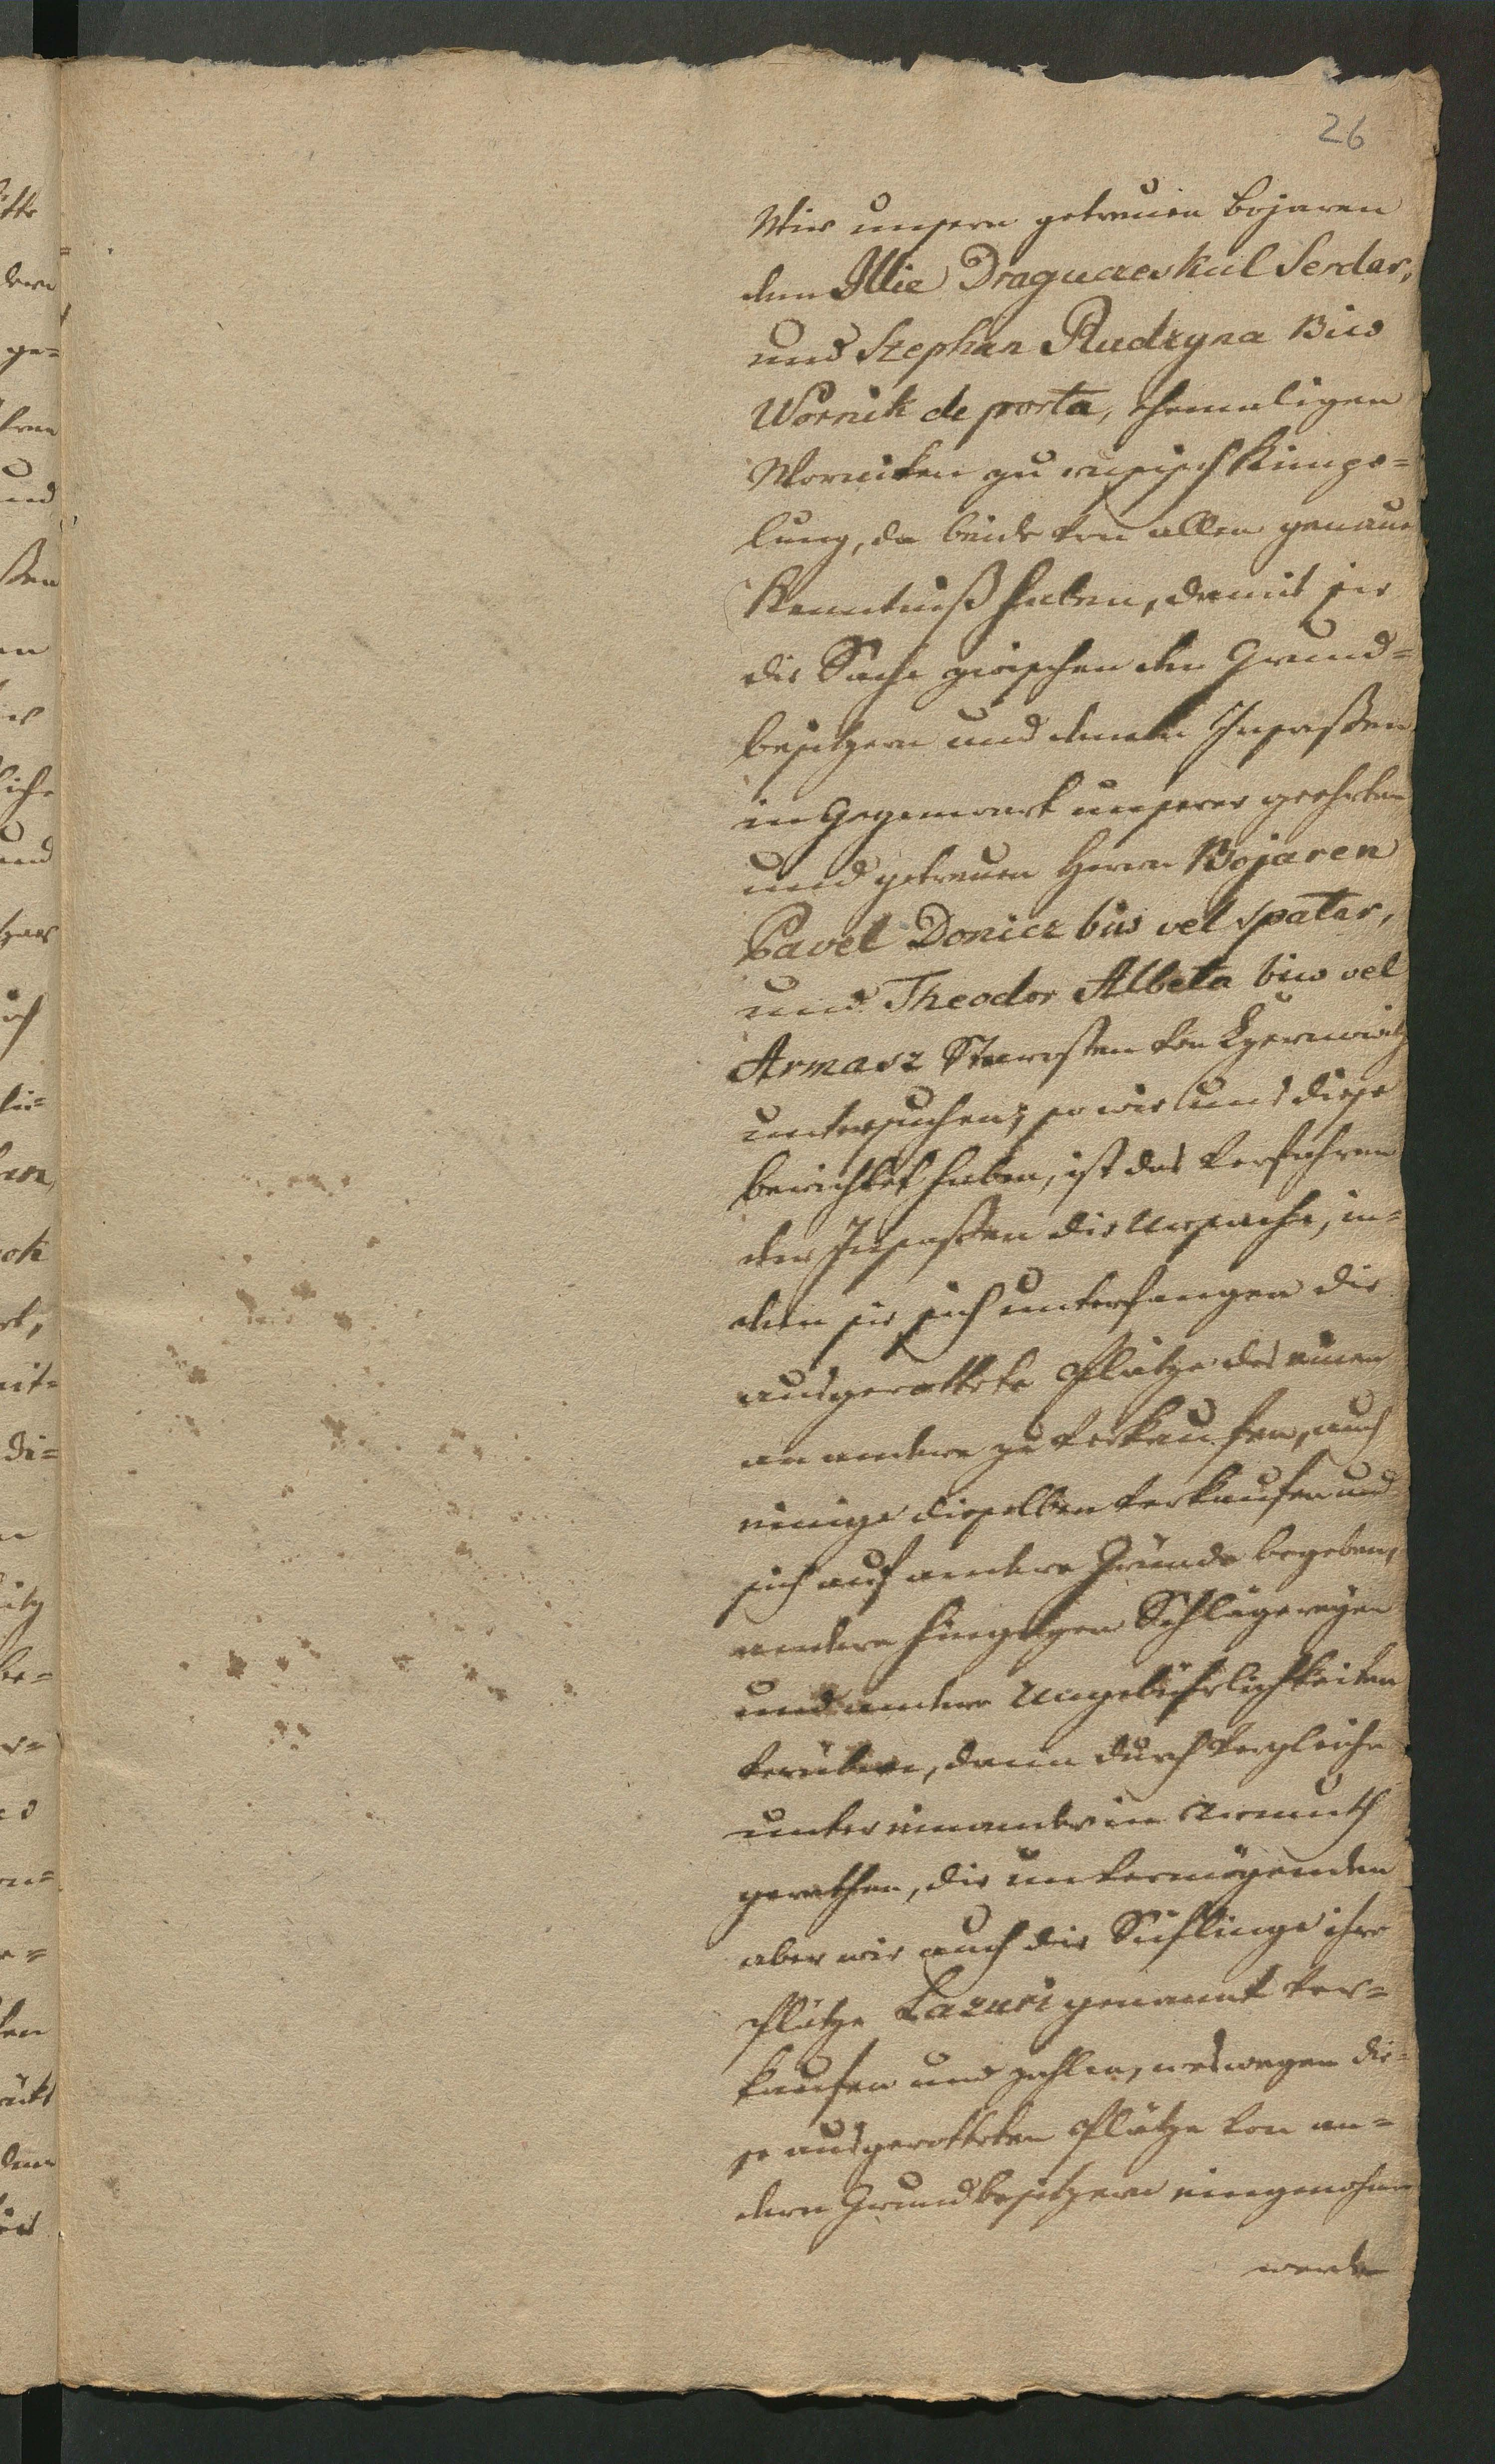 26
Wir unsern getreuen Bojaren
dem Illie Draguczeskul Serdar,
und Stephan Rudzyna Biw
Wornik de porta, ehemaligen
Worniken zu rusisch Kimpo=
lung, da beide von allen genaue
Kenntniß haben, damit sie
die Sache zwischen den Grund=
besitzern und denen Insassen
in Gegenwart unserer geehrten
und getreuen Herrn Bojaren
Pavel Donicz biw vel spatar,
und Theodor Albota biw vel
Armasz Starosten von Czernwitz
untersuchen; so wie uns diese
berichtet haben, ist das Verfahren
der Insassen die Ursache, in=
dem sie sich unterfangen die
ausgerottete Plätze des einen
an andere zu verkaufen, auch
einige dieselben verkaufen und
sich auf andere Gründe begeben,
andere hingegen Schlägereyen
und andere Ungebührlichkeiten
verüben, dann durch Vergleiche
untereinander in Armuth
gerathen, die unvermögenden
aber wie auch die Sichlinge ihre
Plätze Lazuri genannt ver=
kaufen und zahlen, weswegen die=
se ausgerotteten Plätze von an=
dern Grundbesitzern eingenohmen
werden